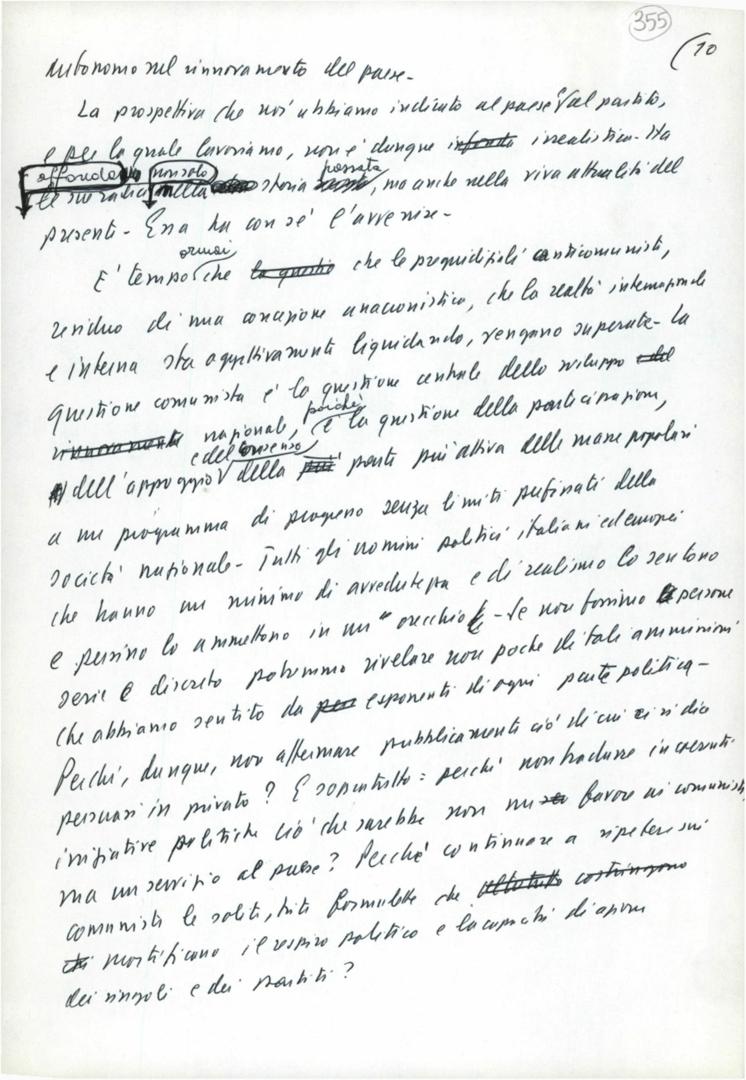 355
(10
autonomo nel rinnovamento del paese -
La prospettiva che noi abbiamo indicato al paese e al partito,
e per la quale lavoriamo, non è dunque irrealistica. Ha
affonda non solo passata
le sue radici nella storia, ma anche nella viva attualità del
presente - Essa ha con sé l'avvenire -
ormai
E' tempo che la questio che le pregiudiziali anticomuniste,
residuo di una concezione anacronistica, che la realtà internazionale
e interna sta oggettivamente liquidando, vengano superate - La
questione comunista è la questione centrale dello sviluppo del
poiché
rinnovamento nazionale, è la questione della partecipazione,
e del consenso
dell'appoggio della più parte più attiva delle masse popolari
a un programma di progresso senza limiti prefissati della
società nazionale - Tutti gli uomini politici italiani ed europei
che hanno un minimo di avvedutezza e di realismo lo sentono
e persino lo ammettono in un "orecchio" - Se non fossimo persone
serie e discrete potremmo rivelare non poche di tali ammissioni
che abbiamo sentito da esponenti di ogni parte politica -
Perché, dunque, non affermare pubblicamente ciò di cui ci si dice
persuasi in privato? E soprattutto: perché non tradurre in coerenti
iniziative politiche ciò che sarebbe non un favore ai comunisti,
ma un servizio al paese? Perché continuare a ripetere sui
comunisti le solite, trite formulette che costringono
mortificano il respiro politico e la capacità di azione
dei singoli e dei partiti?